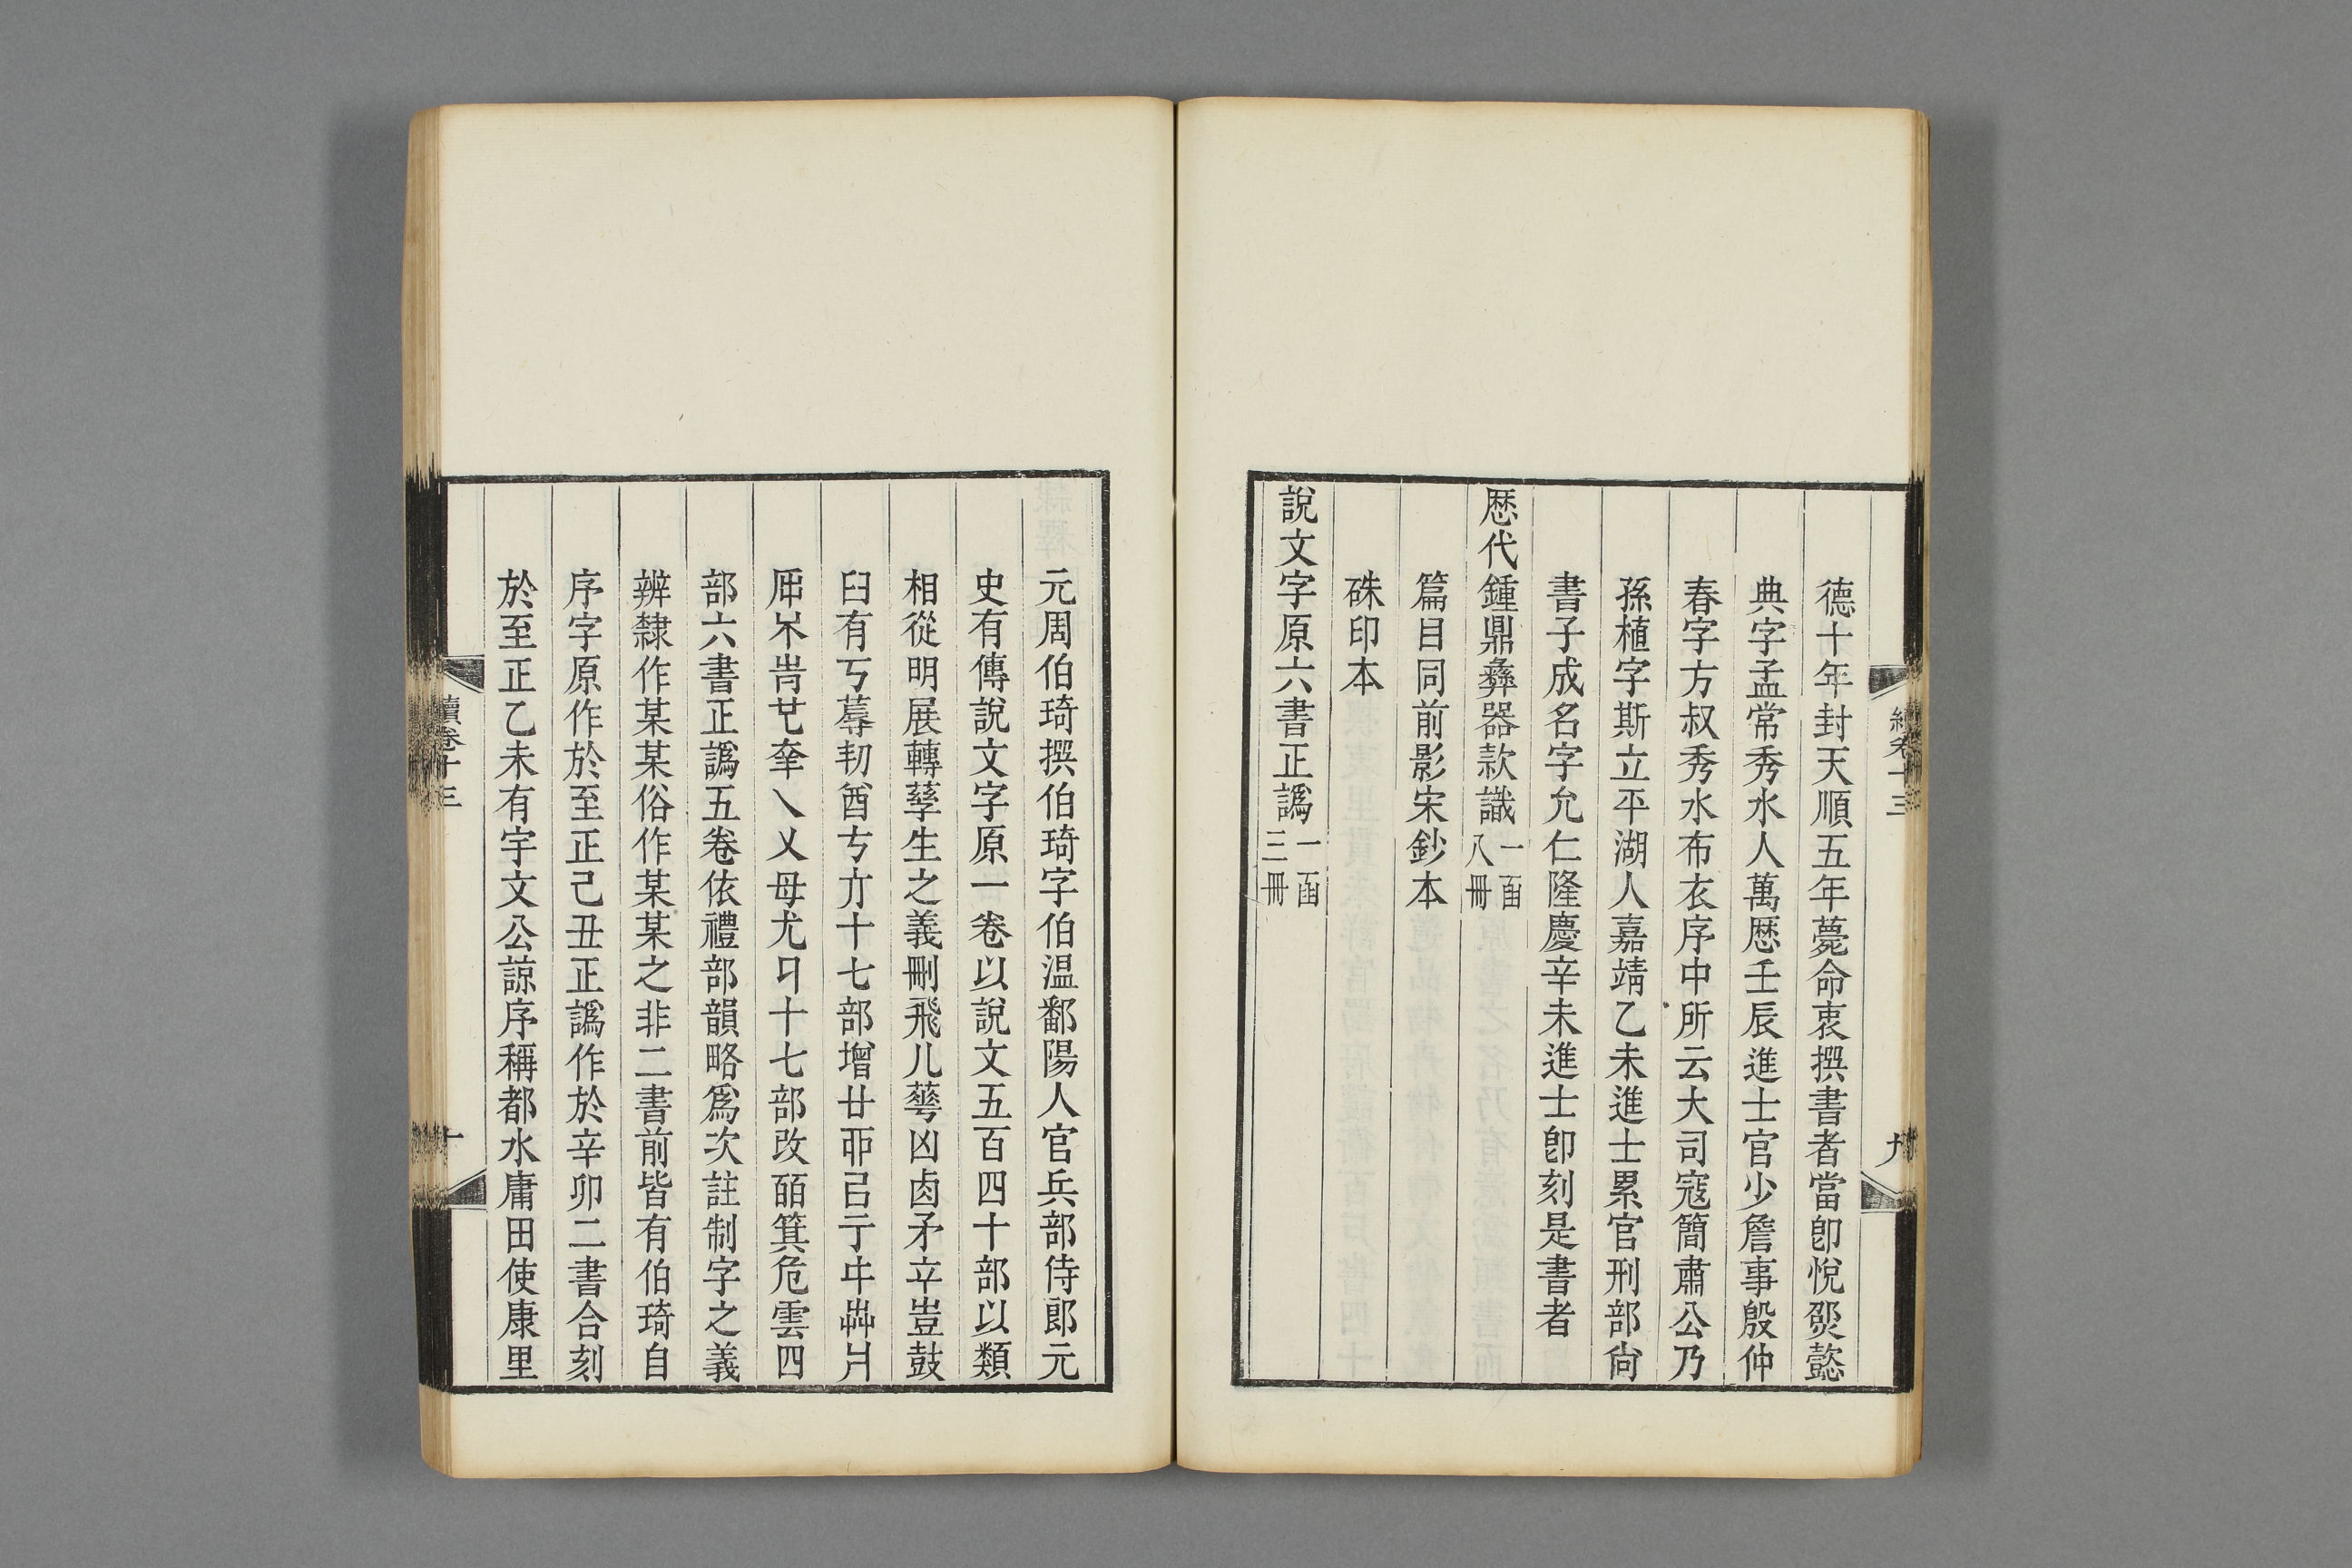 續卷十三
九
德十年封天順五年薨命衷撰書者當卽悅𤐨懿
典字孟常秀水人萬厯壬辰進士官少詹事殷仲
春字方叔秀水布衣序中所云大司寇簡肅公乃
孫植字斯立平湖人嘉靖乙未進士累官刑部尙
書子成名字允仁隆慶辛未進士卽刻是書者
厯代鍾鼎彝器款識一函八冊
篇目同前影宋鈔本
硃印本
說文字原六書正譌一函三冊
元周伯琦撰伯琦字伯温鄱陽人官兵部侍郎元
史有傳說文字原一卷以說文五百四十部以類
相從明展轉孳生之義刪飛儿蕚凶卤矛立豈鼓
臼有丂蓐㓞酋亐亣十七部增廿丣㠯亍㐄艸爿
𠂢𣎳肯廿夲乀乂母尤㔾十七部改皕箕危雲四
部六書正譌五卷依禮部韻略爲次註制字之義
辨隸作某某俗作某某之非二書前皆有伯琦自
序字原作於至正己丑正譌作於辛卯二書合刻
於至正乙未有宇文公諒序稱都水庸田使康里
續卷十三
十